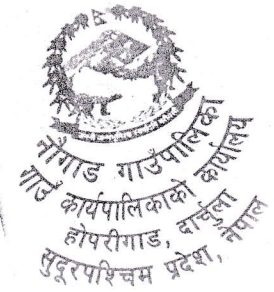 नौगाड गाउँपालिका
गाउँ कार्यपालिकाको कार्यालय
होपरीगाड, दार्चुला
सुदूरपश्चिम प्रदेश, नेपाल